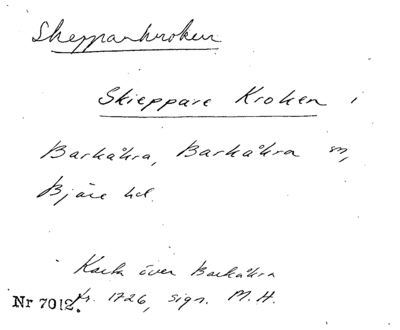 Skepparkroken
Skieppare Kroken i
Barkåkra, Barkåkra sn,
Bjäre hd.
Karta över Barkåkra
Nr 7012. fr. 1726, sign. M. H.